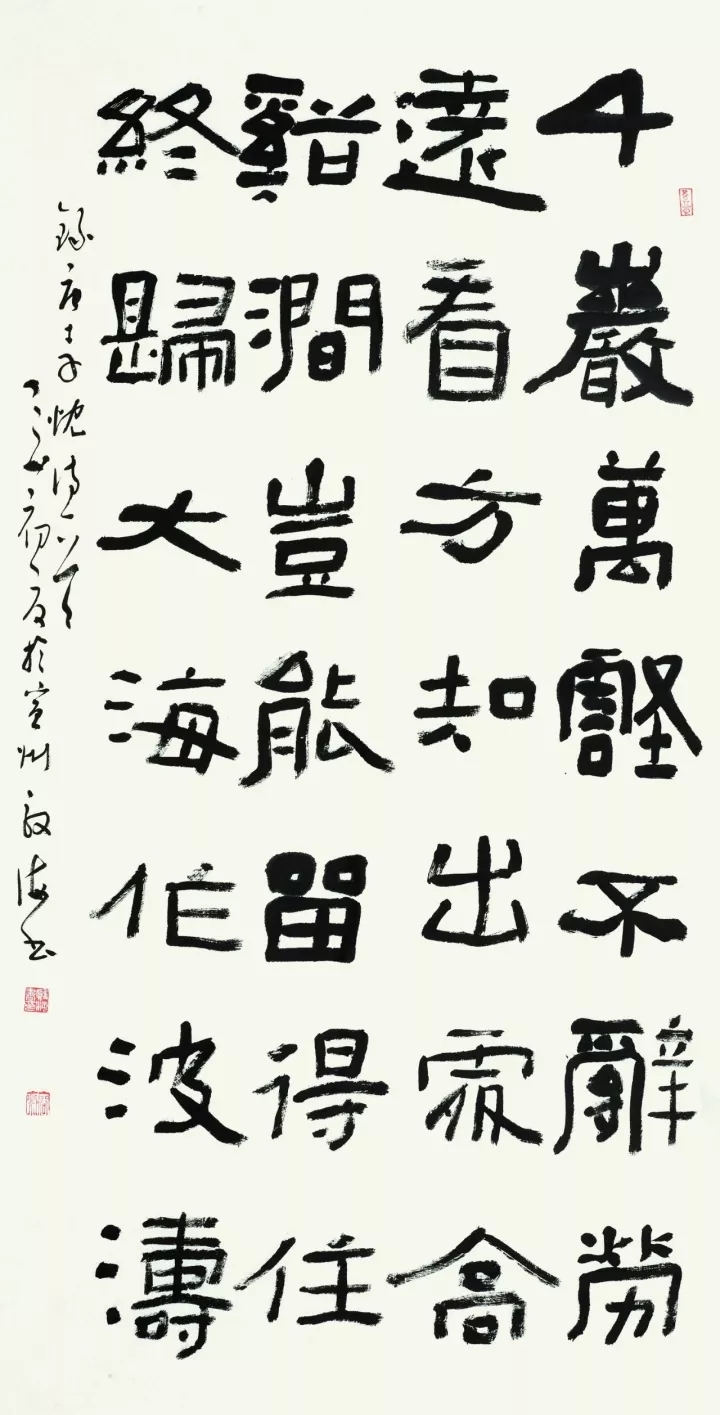 千巖萬壑不辭勞
遠看方知出處高
谿澗豈能留得住
終歸大海作波濤
錄唐李忱詩一首
初夏於宣州